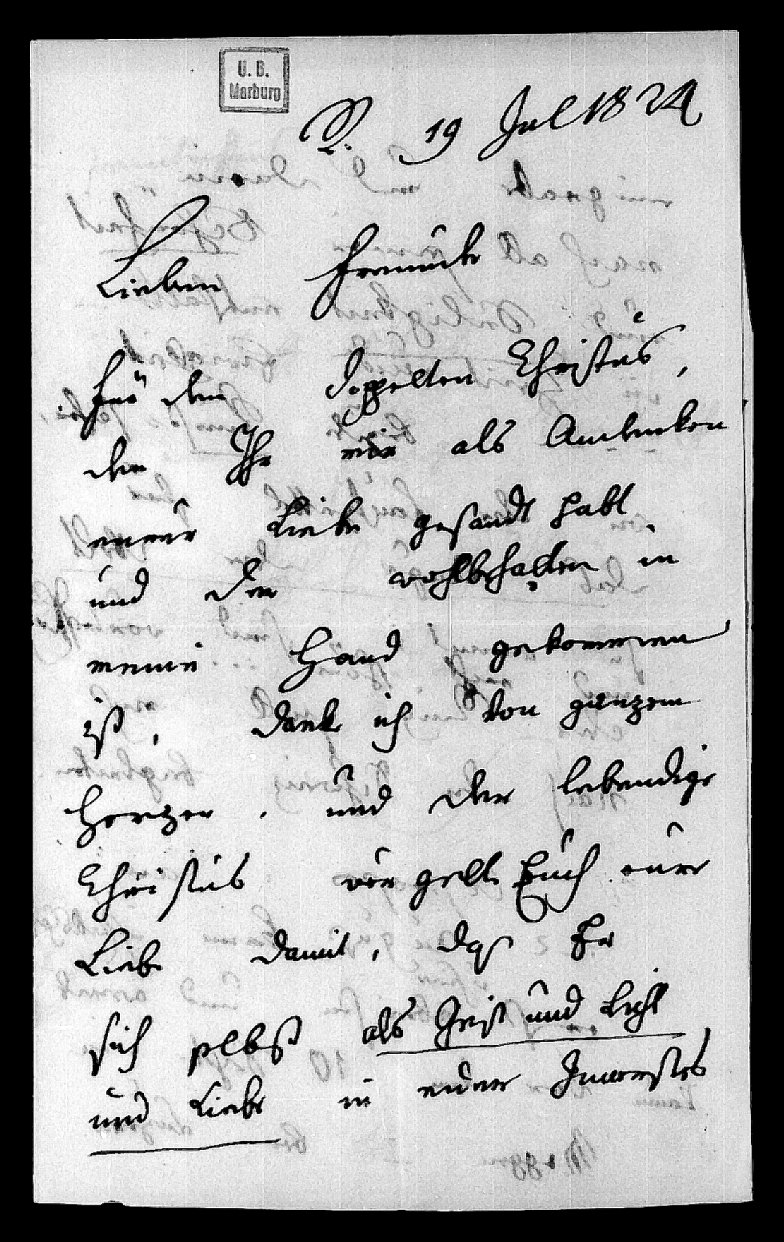 U. B.
Marburg
L. 19 Jul 1824
Lieben Freunde
für den doppelten Christus,
den Ihr mir als Andenken
eurer Liebe gesandt habt
und der wohlbehalten in
meine Hand gekommen
ist, danke ich von ganzem
Herzen, und der lebendige
Christus vergelte Euch eure
Liebe damit, daß Er
sich selbst als Geist und Licht
und Liebe in euer Innerstes